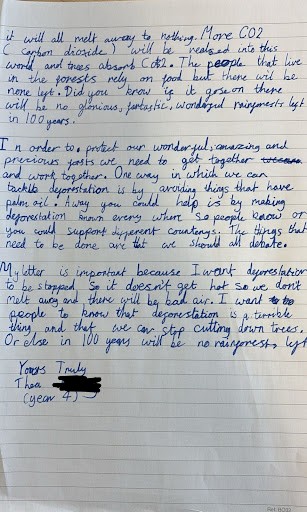 it will all melt away to nothing. More CO2
( carbon dioxide ) will be realsed into this
world and trees absorb CO2. The people that live
in the forests rely on food but there wil be
none left. Did you know if it goes on there
will be no glorious, fantastic, wonderful rainforests left
in 100 years.
In order to protect our wonderful, amazing and
precious forsts we need to get together
and work together. One way in which we can
tackle deforestation is by avoiding things that have
palm oil. Away you could help is by making
deforestation known every where so people know or
you could support different countarys. The things that
need to be done are that we should all debate.
My letter is important because I want deforestation
to be stopped so it doesn't get hot so we don't
melt away and there will be bad air. I want to
people to know that deforestation is a terrible
thing and that we can stop cutting down trees.
Or else in 100 years will be no rainforests left
Yours Truly
Thea
(year 4)